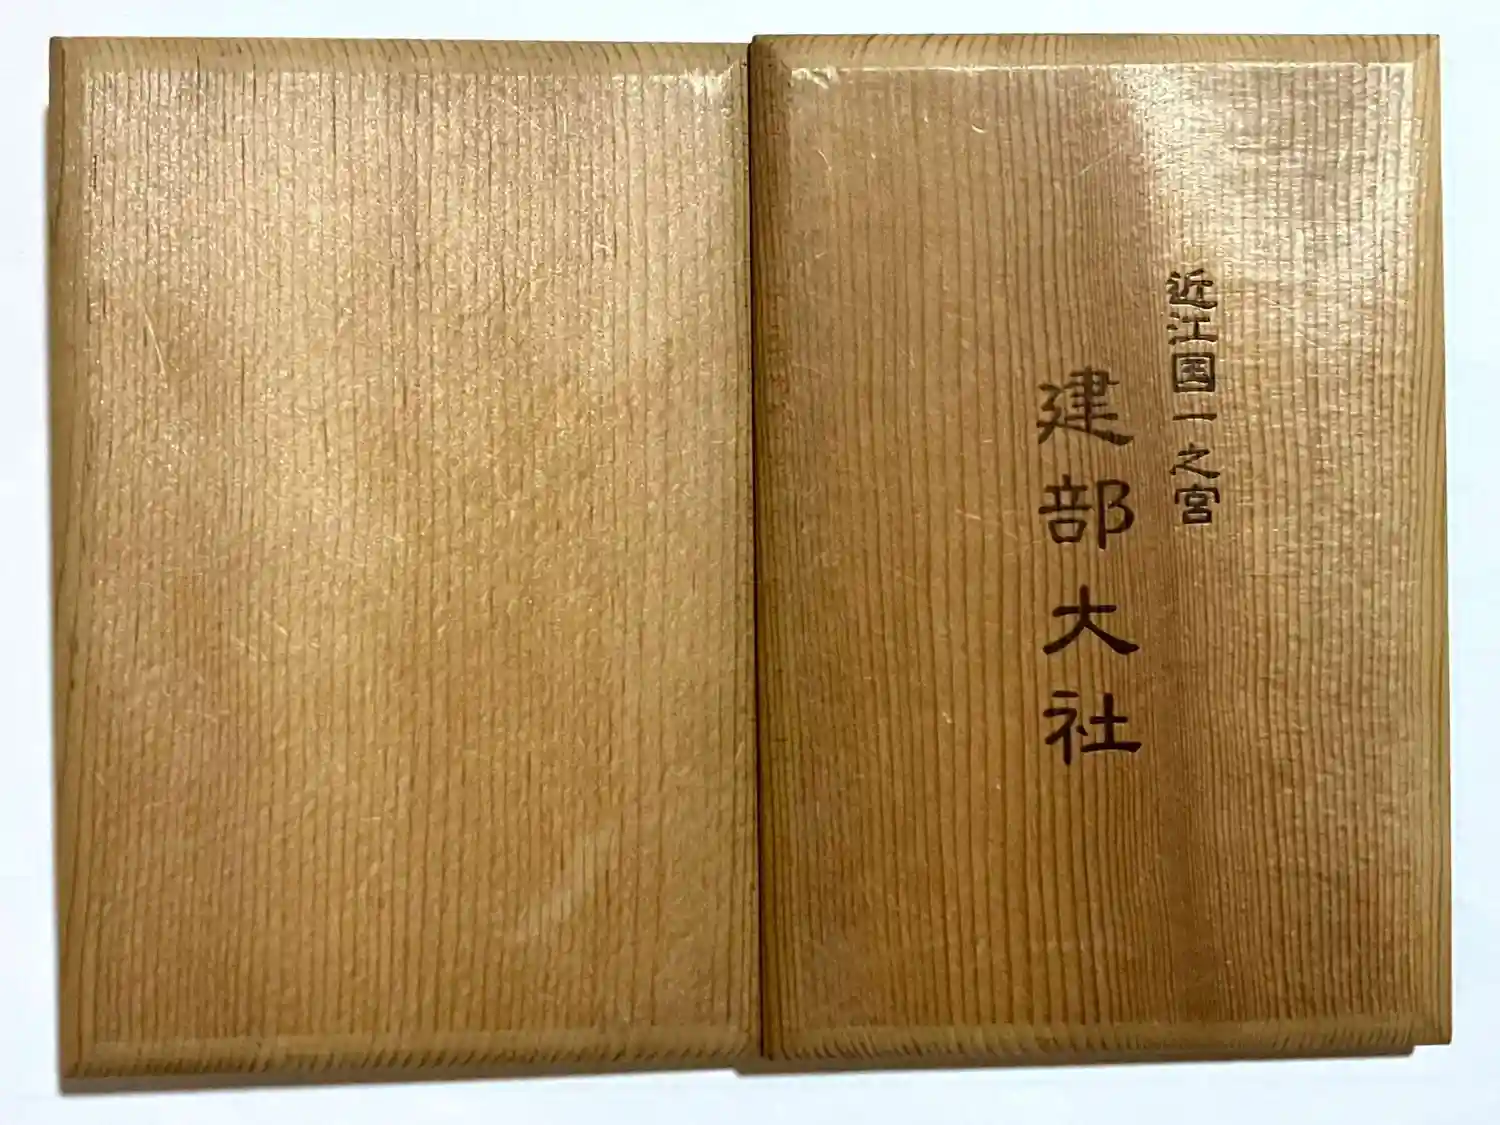 近江国一之宮
建部大社